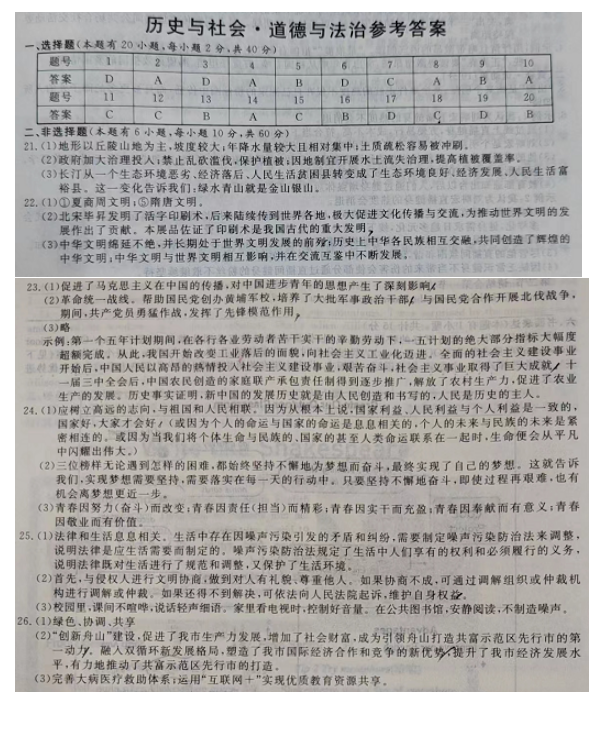 历史与社会·道德与法治参考答案
一、选择题(本题有20小题,每小题2分,共40分)
题号 1 2 3 4 5 6 7 8 9 10
答案 D A D A B D C A B A
题号 11 12 13 14 15 16 17 18 19 20
答案 C C B A C B D C D B
二、非选择题(本题有6小题,每小题10分,共60分)
21.(1)地形以丘陵山地为主,坡度较大;年降水量较大且相对集中;土质疏松容易被冲刷。
(2)政府加大治理投入;禁止乱砍滥伐,保护植被;因地制宜开展水土流失治理,提高植被覆盖率。
(3)长汀从一个生态环境恶劣、经济落后、人民生活贫困县转变成了生态环境良好、经济发展、人民生活富
裕县。这一变化告诉我们:绿水青山就是金山银山。
22.(1)①夏商周文明;⑤隋唐文明。
(2)北宋毕昇发明了活字印刷术,后来陆续传到世界各地,极大促进文化传播与交流,为推动世界文明的发
展作出了贡献。本展品佐证了印刷术是我国古代的重大发明。
(3)中华文明绵延不绝,并长期处于世界文明发展的前列;历史上中华各民族相互交融,共同创造了辉煌的
中华文明;中华文明与世界文明相互影响,并在交流互鉴中不断发展。
23.(1)促进了马克思主义在中国的传播,对中国进步青年的思想产生了深刻影响。
(2)革命统一战线。帮助国民党创办黄埔军校,培养了大批军事政治干部;与国民党合作开展北伐战争,
期间,共产党员勇猛作战,发挥了先锋模范作用。
(3)略
示例:第一个五年计划期间,在各行各业劳动者苦干实干的辛勤劳动下,一五计划的绝大部分指标大幅度
超额完成。从此,我国开始改变工业落后的面貌,向社会主义工业化迈进。全面的社会主义建设事业
开始后,中国人民以高昂的热情投入社会主义建设事业,艰苦奋斗,社会主义事业取得了巨大成就。十
一届三中全会后,中国农民创造的家庭联产承包责任制得到逐步推广,解放了农村生产力,促进了农业
生产的发展。历史事实证明,新中国的发展历史就是由人民创造和书写的,人民是历史的主人。
24.(1)应树立高远的志向,与祖国和人民相联。因为从根本上说,国家利益、人民利益与个人利益是一致的,
国家好,大家才会好。(或因为个人的命运与国家的命运是息息相关的,个人的未来与民族的未来是紧
密相连的。或因为当我们将个体生命与民族的、国家的甚至人类命运联系在一起时,生命便会从平凡
中闪耀出伟大。)
(2)三位榜样无论遇到怎样的困难,都始终坚持不懈地为梦想而奋斗,最终实现了自己的梦想。这就告诉
我们,实现梦想需要坚持,需要落实在每一天的行动中。只要坚持不懈地奋斗,即使过程再艰难,也有
机会离梦想更近一步。
(3)青春因努力(奋斗)而改变;青春因责任(担当)而精彩;青春因实干而充盈;青春因奉献而有意义;青春
因敬业而有价值。
25.(1)法律和生活息息相关。生活中存在因噪声污染引发的矛盾和纠纷,需要制定噪声污染防治法来调整,
说明法律是应生活需要而制定的。噪声污染防治法规定了生活中人们享有的权利和必须履行的义务,
说明法律既对生活进行了规范和调整,又保护了生活环境。
(2)首先,与侵权人进行文明协商,做到对人有礼貌、尊重他人。如果协商不成,可通过调解组织或仲裁机
构进行调解或仲裁。如果还得不到解决,可依法向人民法院起诉,维护自身权益。
(3)校园里,课间不喧哗,说话轻声细语。家里看电视时,控制好音量。在公共图书馆,安静阅读,不制造噪声。
26.(1)绿色、协调、共享
(2)“创新舟山”建设,促进了我市生产力发展,增加了社会财富,成为引领舟山打造共富示范区先行市的第
一动力。融入双循环新发展格局,塑造了我市国际经济合作和竞争的新优势,提升了我市经济发展水
平,有力地推动了共富示范区先行市的打造。
(3)完善大病医疗救助体系;运用“互联网+”实现优质教育资源共享。